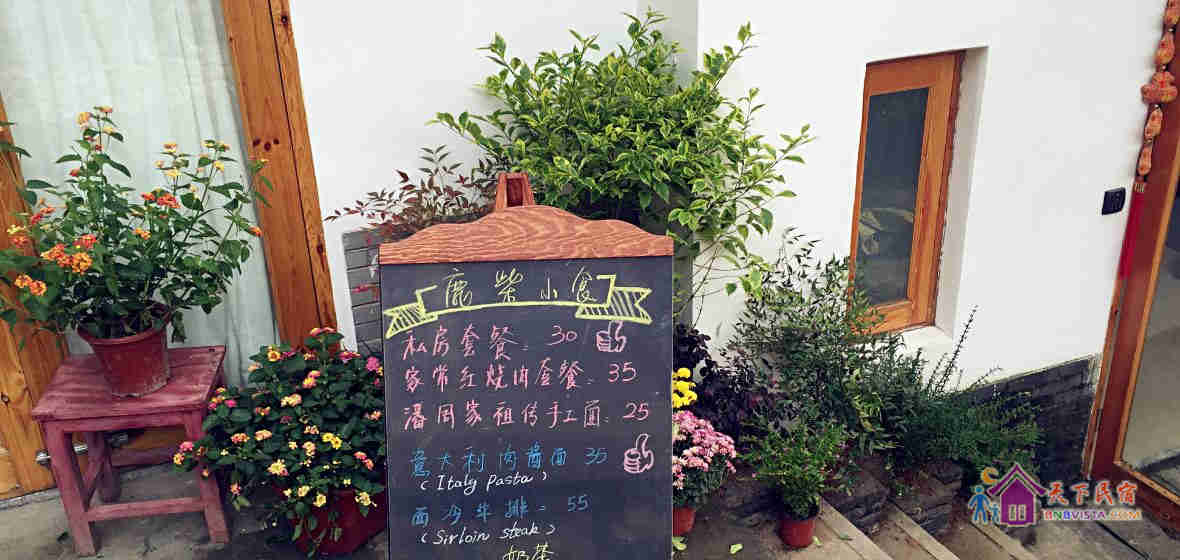 鹿柴小食
私房套餐: 30
家常红烧肉套餐: 35
潘周家祖传手工面: 25
意大利肉酱面 35
(Italy Pasta)
西冷牛排: 55
(Sirloin steak)
奶茶
天下民宿
BNBVISTA.COM